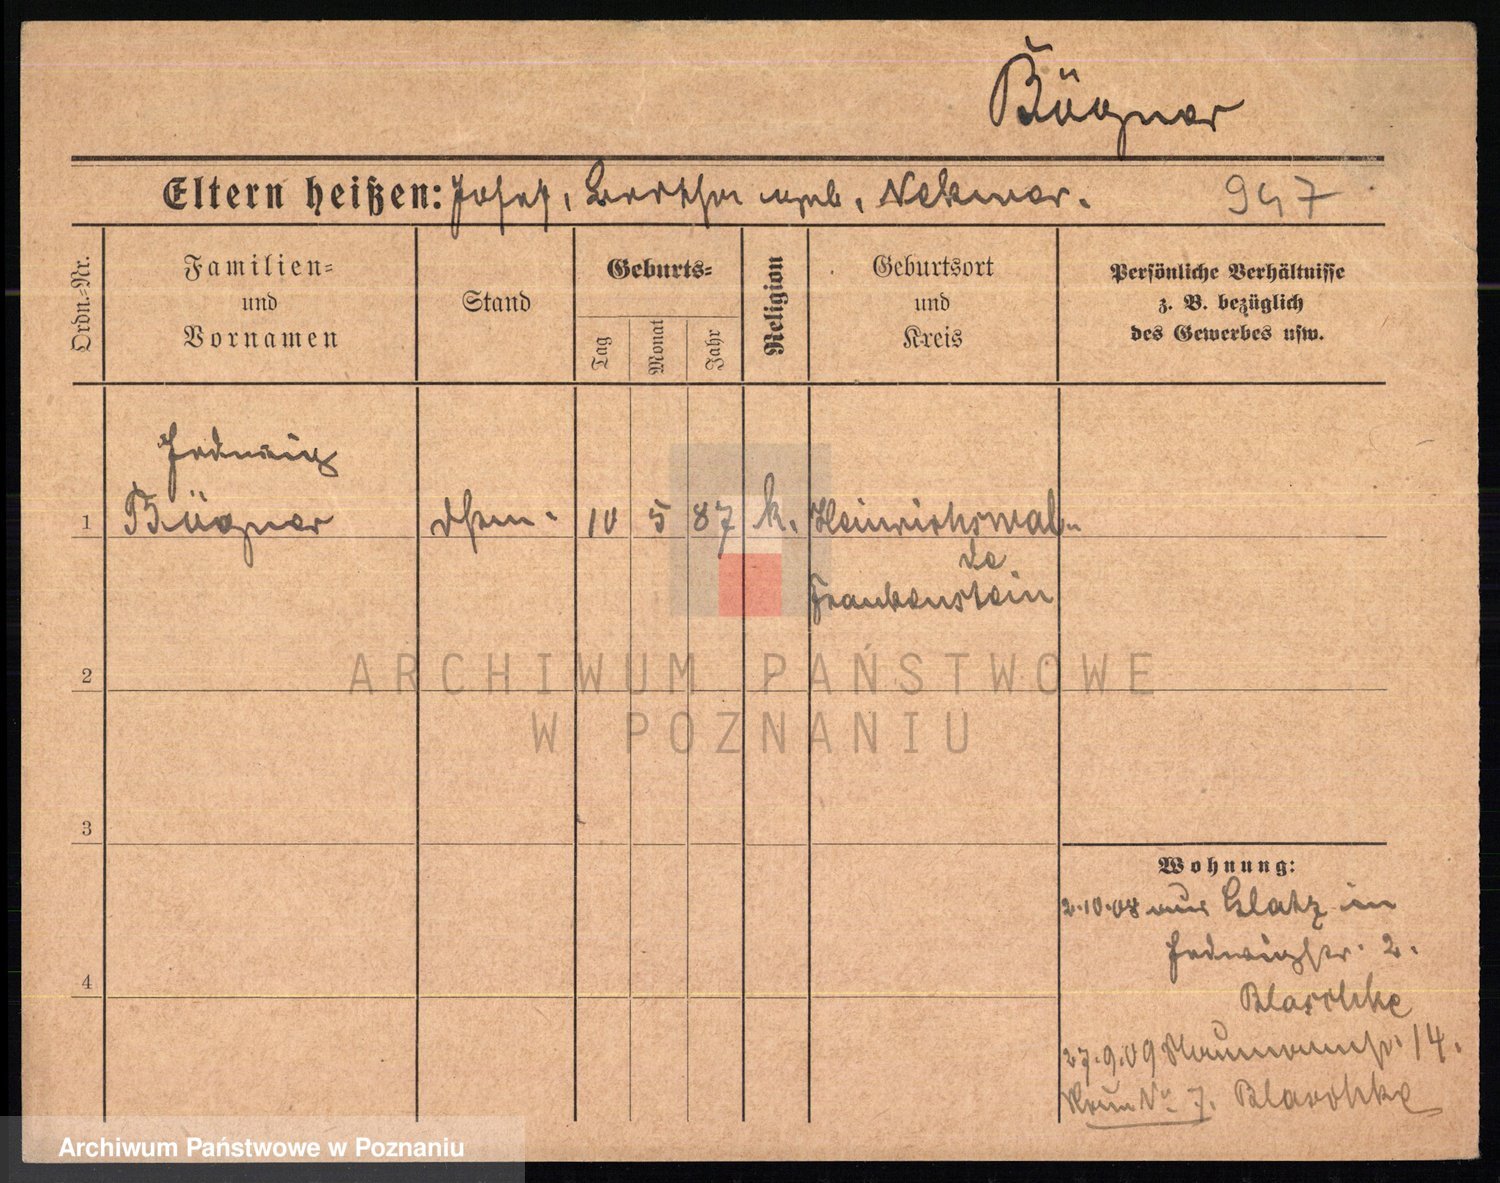 Bögner
Eltern heißen: Josef, Bertha geb. Nekwer. 947
Ordn.-Nr.
Familien-
und
Vornamen
Stand
Geburts-
Tag
Monat
Jahr
Religion
Geburtsort
und
Kreis
Persönliche Verhältnisse
z. B. bezüglich
des Gewerbes usw.
Hedwig
1 Bögner 10 5 87 k. Heinrichswal-
de
Frankenstein
2
3
4
Wohnung:
2.10.08 aus Glatz in
Hedwigstr. 2.
Blaschke
27.9.09 Naumannstr. 14.
No 7. Blaschke
ARCHIWUM PAŃSTWOWE
W POZNANIU
Archiwum Państwowe w Poznaniu